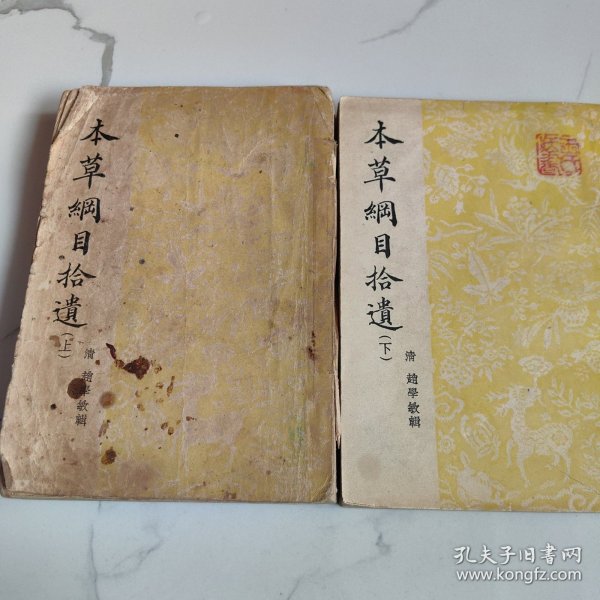 本草綱目拾遺(上)
清 趙學敏輯
本草綱目拾遺(下)
清 趙學敏輯
孔夫子旧书网
www.kongfz.com